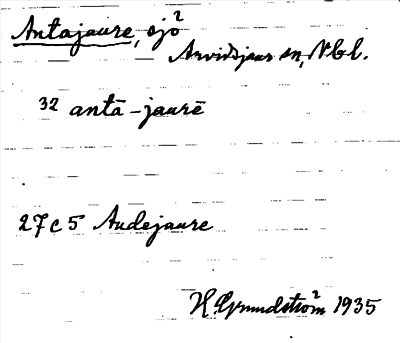 Antajaure, sjö
Arvidsjaur sn, Nbl.
32 antā-jaurē
27c5 Audejaure
H. Grundström 1935